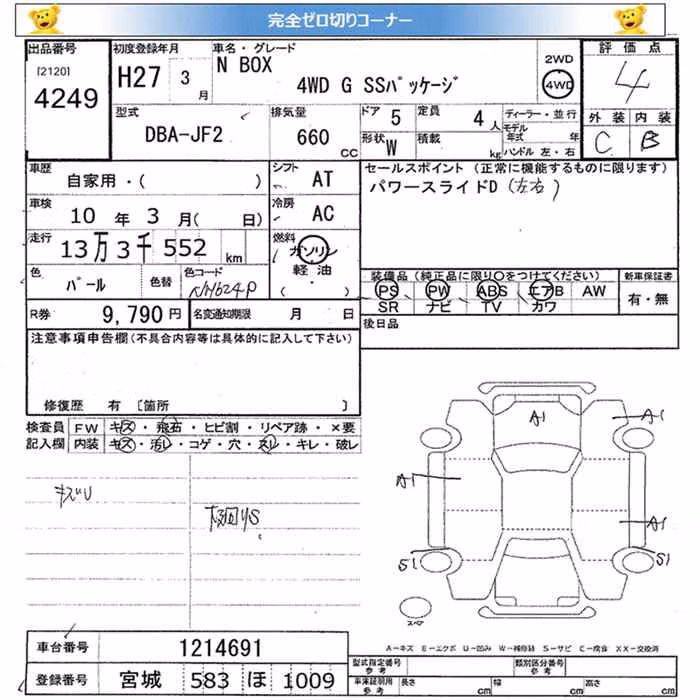 完全ゼロ切りコーナー
出品番号 初度登録年月 車名・グレード 評価点
[2120] H27 3月 N BOX 2WD 4
4249 4WD G SSパッケージ 4WD
型式 排気量 ドア 5 定員 4人 ディーラー・並行 外装 内装
DBA-JF2 660cc 形状 W 積載 kg モデル年式 年 C B
ハンドル 左・右
車歴 自家用・( ) シフト AT セールスポイント (正常に機能するものに限ります)
車検 10年 3月( 日) 冷房 AC パワースライドD (左右)
走行 13万3千552km 燃料 ガソリン
軽油
( ・ )
色 パール 色替 色コード NH624P 装備品(純正品に限り○をつけてください) 新車保証書
PS PW ABS エアB AW 有・無
SR ナビ TV カワ
R券 9,790円 名変通知期限 月 日 後日品
注意事項申告欄(不具合内容等は具体的に記入して下さい)
修復歴 有 [箇所 ]
検査員 FW キズ・飛石・ヒビ割・リペア跡・×要
記入欄 内装 キズ・汚レ・コゲ・穴・スレ・キレ・破レ
キズU
下回りS
A1
A1
A1
A1
S1
S1
スペア
A-キズ E-エクボ U-凹み W-補修跡 S-サビ C-腐食 XX-交換済
車台番号 1214691 型式指定番号 参考 類別区分番号 参考
登録番号 宮城 583 ほ 1009 車庫証明用 参考 長さ cm 幅 cm 高さ cm